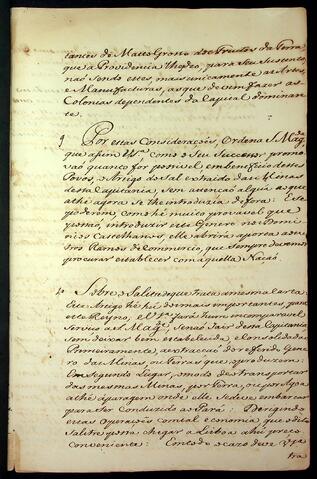 tantes de Matto Grosso dos Fructos da Terra,
que a Providencia lhe deo, para seu sustento,
naõ sendo estes, mais unicamente as Artes,
e Manufacturas, as que devem fazer as
Colonias dependentes da Capital dominan-
te.
9 Por estas Consideraçoes, Ordena S. Mag.de
que assim V.S.a como o Seu Successor promo-
vaõ quanto for possivel em beneficio desses
Povos, o Artigo do Sal extraido das Minas
desta Capitania, sem attençaõ algũa ao que
athe agora se lhe introduzia de fora: E se
poderem como he muito provavel que
possaõ, introduzir este Genero nos Domi-
nios Castelhanos, elle abrirá a porta a ou-
tros Ramos de Commercio, que sempre devemos
procurar estabelecer com aquella Naçaõ.
10 Sobre o Salitre de que trata a mesma carta
Este Artigo hé dos mais importantes para
este Reyno, e V.S.a fará hum incomparavel
Serviço a S. Mag.e, se naõ sair desta Capitania
sem deixar bem estabelecida, e consolidada
Primeiramente, a extracçaõ do referido Gene-
ro das Minas, ou Terras que o produzem:
Em Segundo Lugar, o modo de transportar
das mesmas Minas, por Terra, ou por Agoa
athé a paragem onde elle se deve embarcar
para ser Conduzido ao Pará: Dirigindo
estas Operações com tal economia que o dito
Salitre possa chegar a Lisboa a hũ preço
conveniente: Em todo o caso deve V.S.a
tra